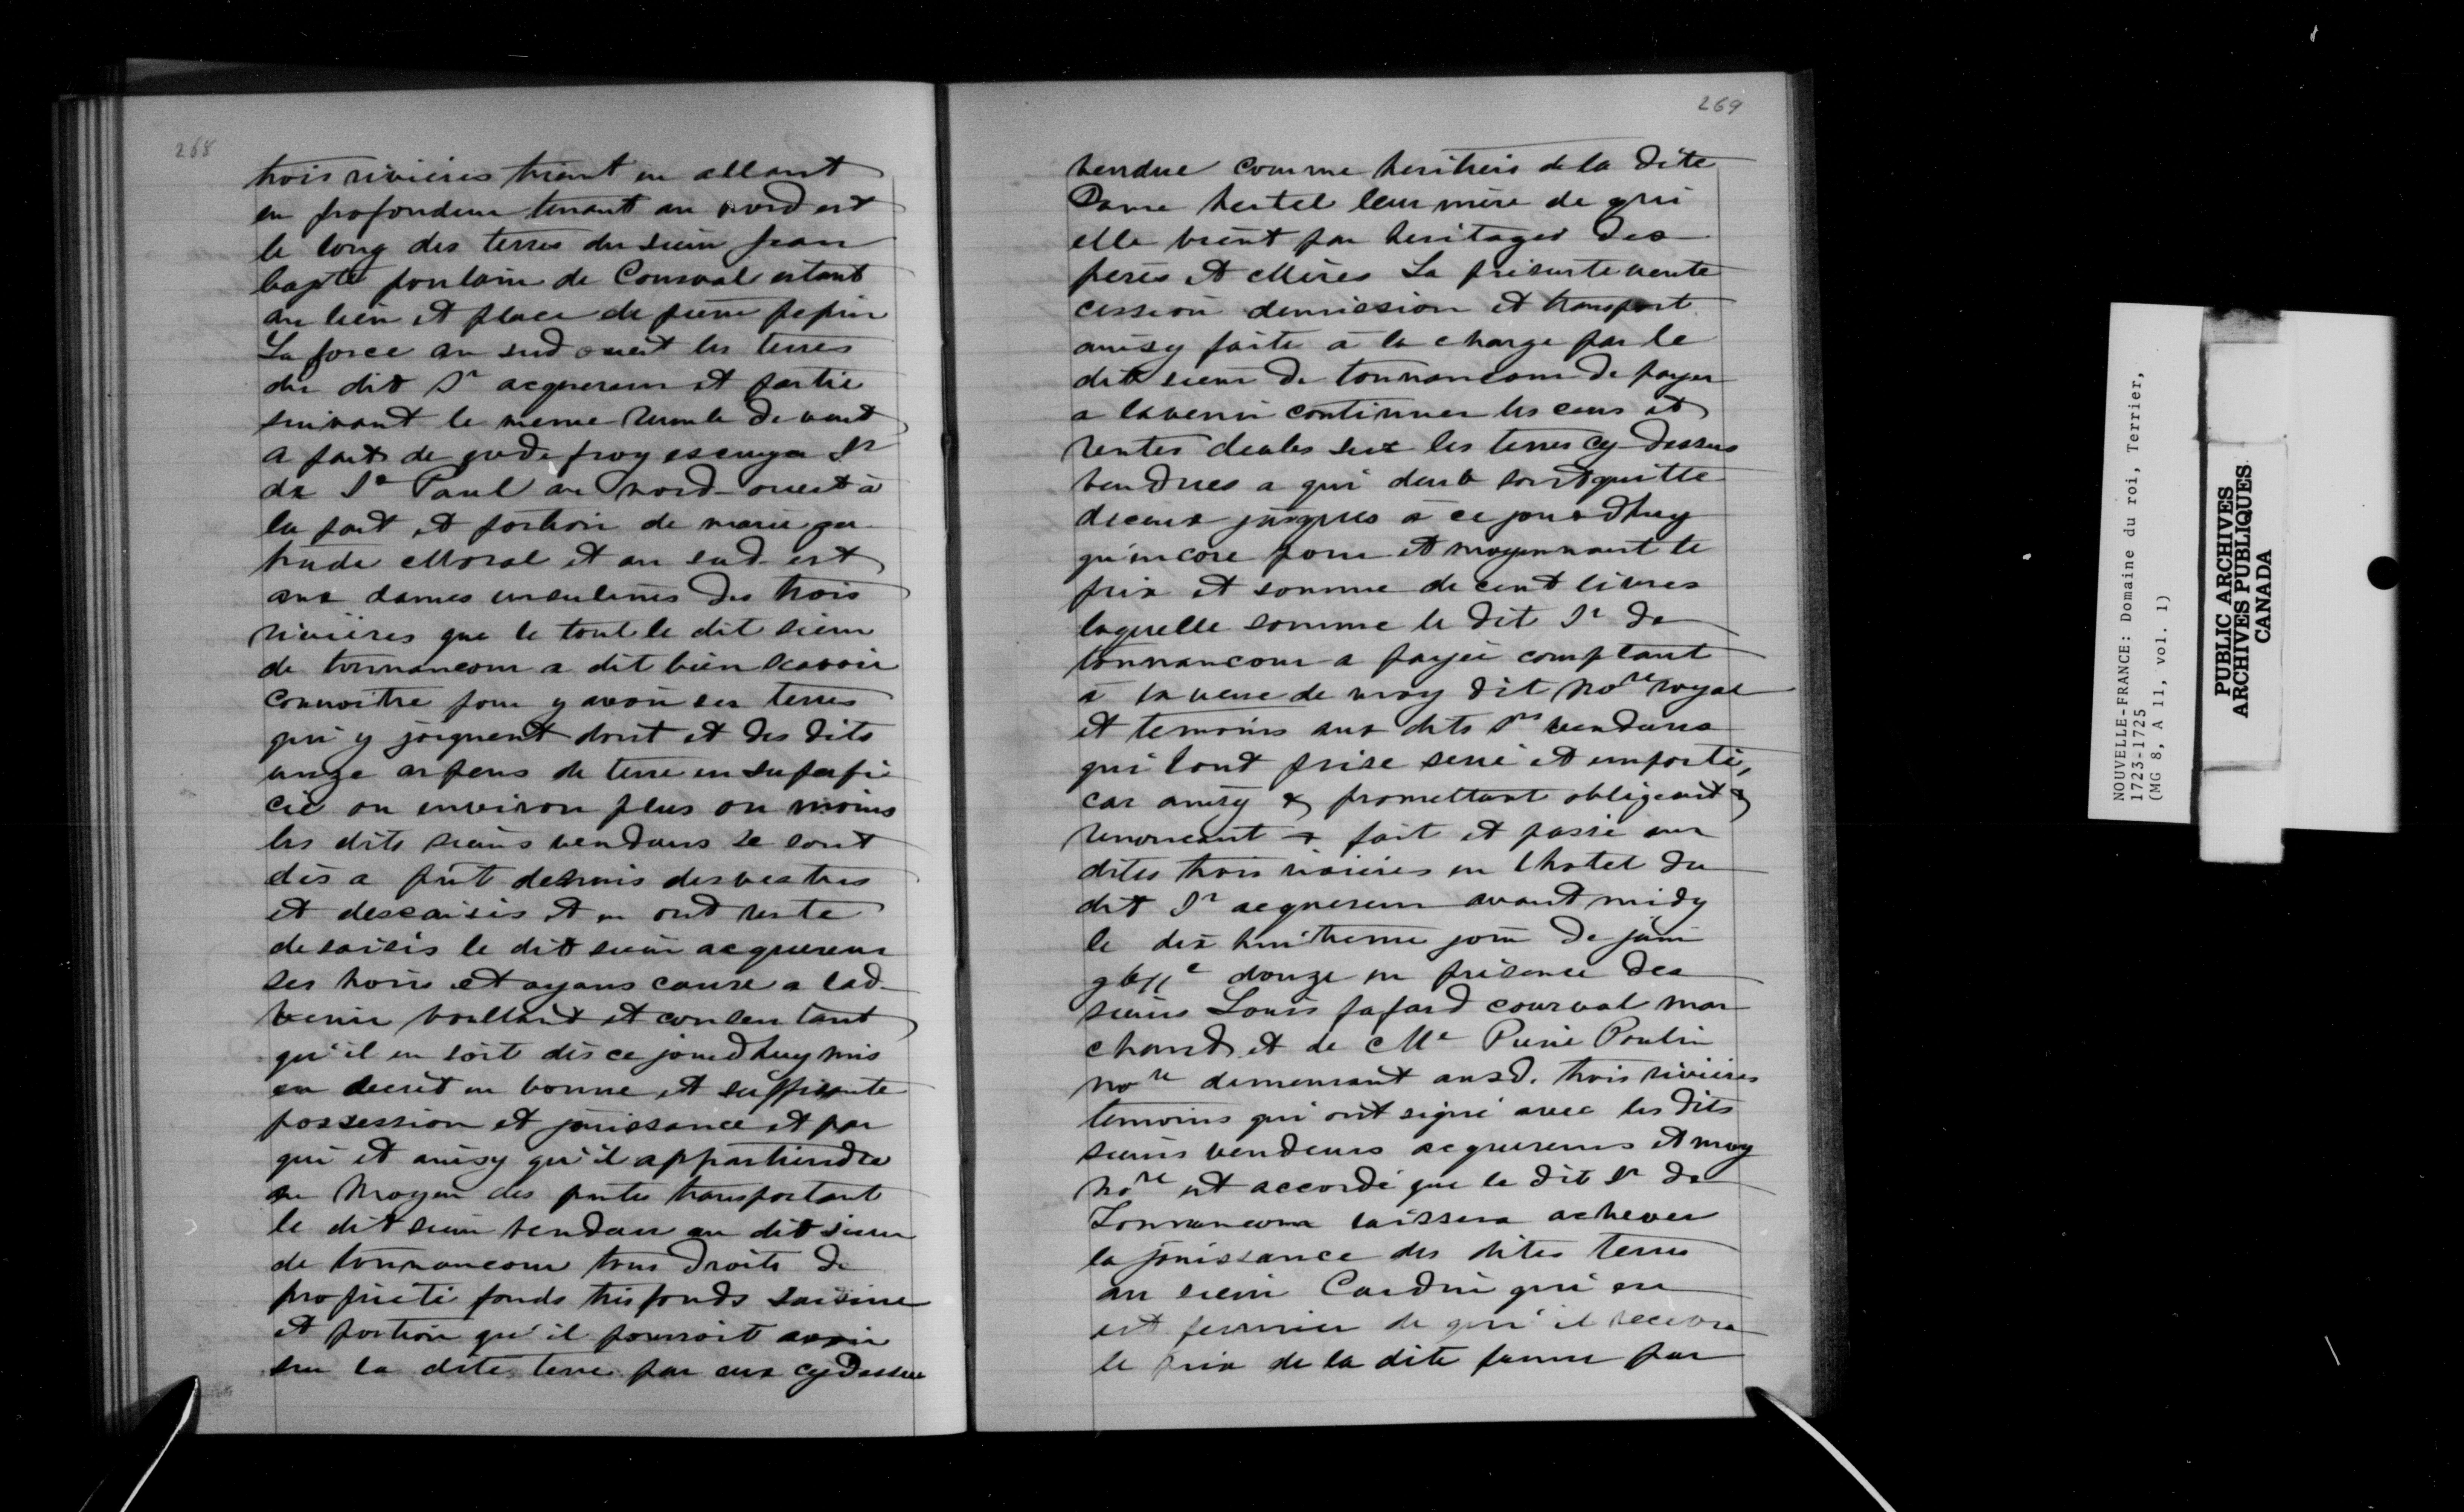 268
trois rivieres tirant en allant
en profondeur tenant au nord est
le long des terres du sieur Jean
bapte poulain de Courval estant
au lieu et place de pierre pepin
La force au sud ouest les terres
du dit Sr acquereur et partie
suivant le meme rumb de vent
a fait de gode froy escuyer Sr
de St Paul au nord-ouest à
la part et portion de marie ger
trude Moral et au sud-est
aux dames ursulines des trois
rivieres que le tout le dit sieur
de tonnancour a dit bien scavoir
connoitre pour y avoir ses terres
qui y joignent dont et des dits
unze arpens de terre en superfi
cie ou environ plus ou moins
les dits sieurs vendeurs se sont
dès a pnt demis desvestus
et dessaisis et en ont
de saisis le dit sieur acquereur
ses hoirs et ayans cause a lad
venir voullant et consentant
qu'il en soit dès ce jourdhuy mis
en decret en bonne et suffisante
possession et jouissance et par
qui et ainsy qu'il appartiendra
au moyen des pntes transportant
le dit sieur vendeur au dit sieur
de tonnancour tous droits de
proprieté fonds tresfonds saisine
et portion qu'il pourroit avoir
sur la dite terre par eux cydessus
269
vendue comme heritiers de la dite
Dame hertel leur mère de qui
elle vient par heritages des
peres et Mères La presente vente
cession demission et transport
ainsy faite à la charge par le
dit sieur de tonnancour de payer
a lavenir continuer les cens et
rentes deubs sur les terres cy dessus
vendues a qui deub sont quitte
diceux jusques à ce jourdhuy
qu'encore pour et moyennant le
prix et somme de cent livres
laquelle somme le dit Sr de
tonnancour a payée comptant
à la veue de moy dit nore royal
et temoins aux dits Srs vendeurs
qui lont prise serré et emporté,
car ainsy & promettant obligeant &
renoncant & fait et passé aux
dites trois rivieres en lhotel du
dit Sr acquereur avant midy
le dix huitieme jour de juin
gbiie douze en présence des
sieurs Louis fafard courval mar
chand et de Me Pierre Poulin
nore demeurant ausd. trois rivieres
temoins qui ont signé avec les dits
sieurs vendeurs acquereurs et moy
nore est accordé que le dit Sr de
Tonnancour laissera achever
la jouissance des dites terres
au sieur Cardin qui en
est fermier de qui il recevra
le prix de la dite ferme par
NOUVELLE-FRANCE: Domaine du roi, Terrier,
1723-1725
(MG 8, A 11, vol. 1)
PUBLIC ARCHIVES
ARCHIVES PUBLIQUES
CANADA